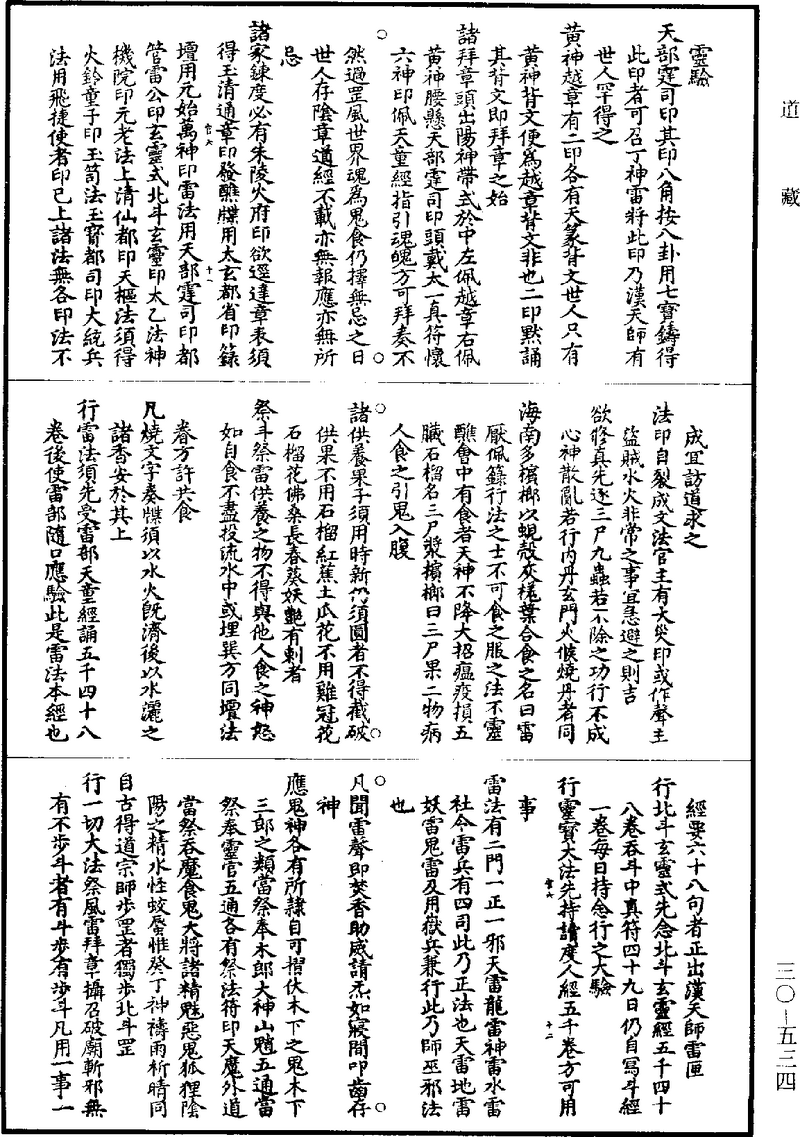 道藏
靈驗
天部霆司印其印八角按八卦用七寶鑄得
此印者可召丁神雷將此印乃漢天師有
世人罕得之
黃神越章有二印各有天篆背文世人只有
黃神背文便為越章背文非也二印默誦
其背文即拜章之始
諸拜章頭出陽神帶式於中左佩越章右佩
黃神腰懸天部霆司印頭戴太一真符懷
六神印佩天童經指引魂魄方可拜奏不
然過罡風世界魂為鬼食仍擇無忌之日
世人存陰章道經不載亦無報應亦無所
忌
諸家鍊度必有朱陵火府印欲逕達章表須
得玉清通章印發醮牒用太玄都省印籙
壇用元始萬神印雷法用天部霆司印都
管雷公印玄靈式北斗玄靈印太乙法神
機院印元老法上清仙都印天樞法須得
火鈴童子印玉笥法玉寶都司印大統兵
法用飛捷使者印已上諸法無各印法不
成宜訪道求之
法印自裂成文法官主有大災印或作聲主
盜賊水火非常之事宜急避之則吉
欲修真先逐三尸九蟲若不除之功行不成
心神散亂若行內丹玄門火候燒丹者同
海南多檳榔以蜆殼灰蔞葉合食之名曰雷
厭佩籙行法之士不可食之服之法不靈
醮會中有食者天神不降大招瘟疫損五
臟石榴名三尸漿檳榔曰三尸果二物病
人食之引鬼入腹
諸供養果子須用時新仍須圓者不得截破
供果不用石榴紅蕉土瓜花不用雞冠花
石榴花佛桑長春葵妖艷有刺者
祭斗祭雷供養之物不得與他人食之神怒
如自食不盡投流水中或埋巽方同壇法
眷方許共食
凡燒文字奏牒須以水火既濟後以水灑之
諸香安於其上
行雷法須先受雷部天童經誦五千四十八
卷後使雷部隨口應驗此是雷法本經也
經要六十八句者正出漢天師雷匣
行北斗玄靈式先念北斗玄靈經五千四十
八卷吞斗中真符四十九日仍自寫斗經
一卷每日持念行之大驗
行靈寶大法先持誦度人經五千卷方可用
事
雷法有二門一正一邪天雷龍雷神雷水雷
社令雷兵有四司此乃正法也天雷地雷
妖雷鬼雷及用嶽兵兼行此乃師巫邪法
也
凡聞雷聲即焚香助威請炁如寢間叩齒存
神
應鬼神各有所隸自可摺伏木下之鬼木下
三郎之類當祭奉木郎大神山魈五通當
祭奉靈官五通各有祭法符印天魔外道
當祭吞魔食鬼大將諸精魅惡鬼狐狸陰
陽之精水性蛟蜃惟癸丁神禱雨祈晴同
自古得道宗師步罡者獨步北斗罡
行一切大法祭風雷拜章攝召破廟斬邪無
有不步斗者有斗步有步斗凡用一事一
三〇—五三四